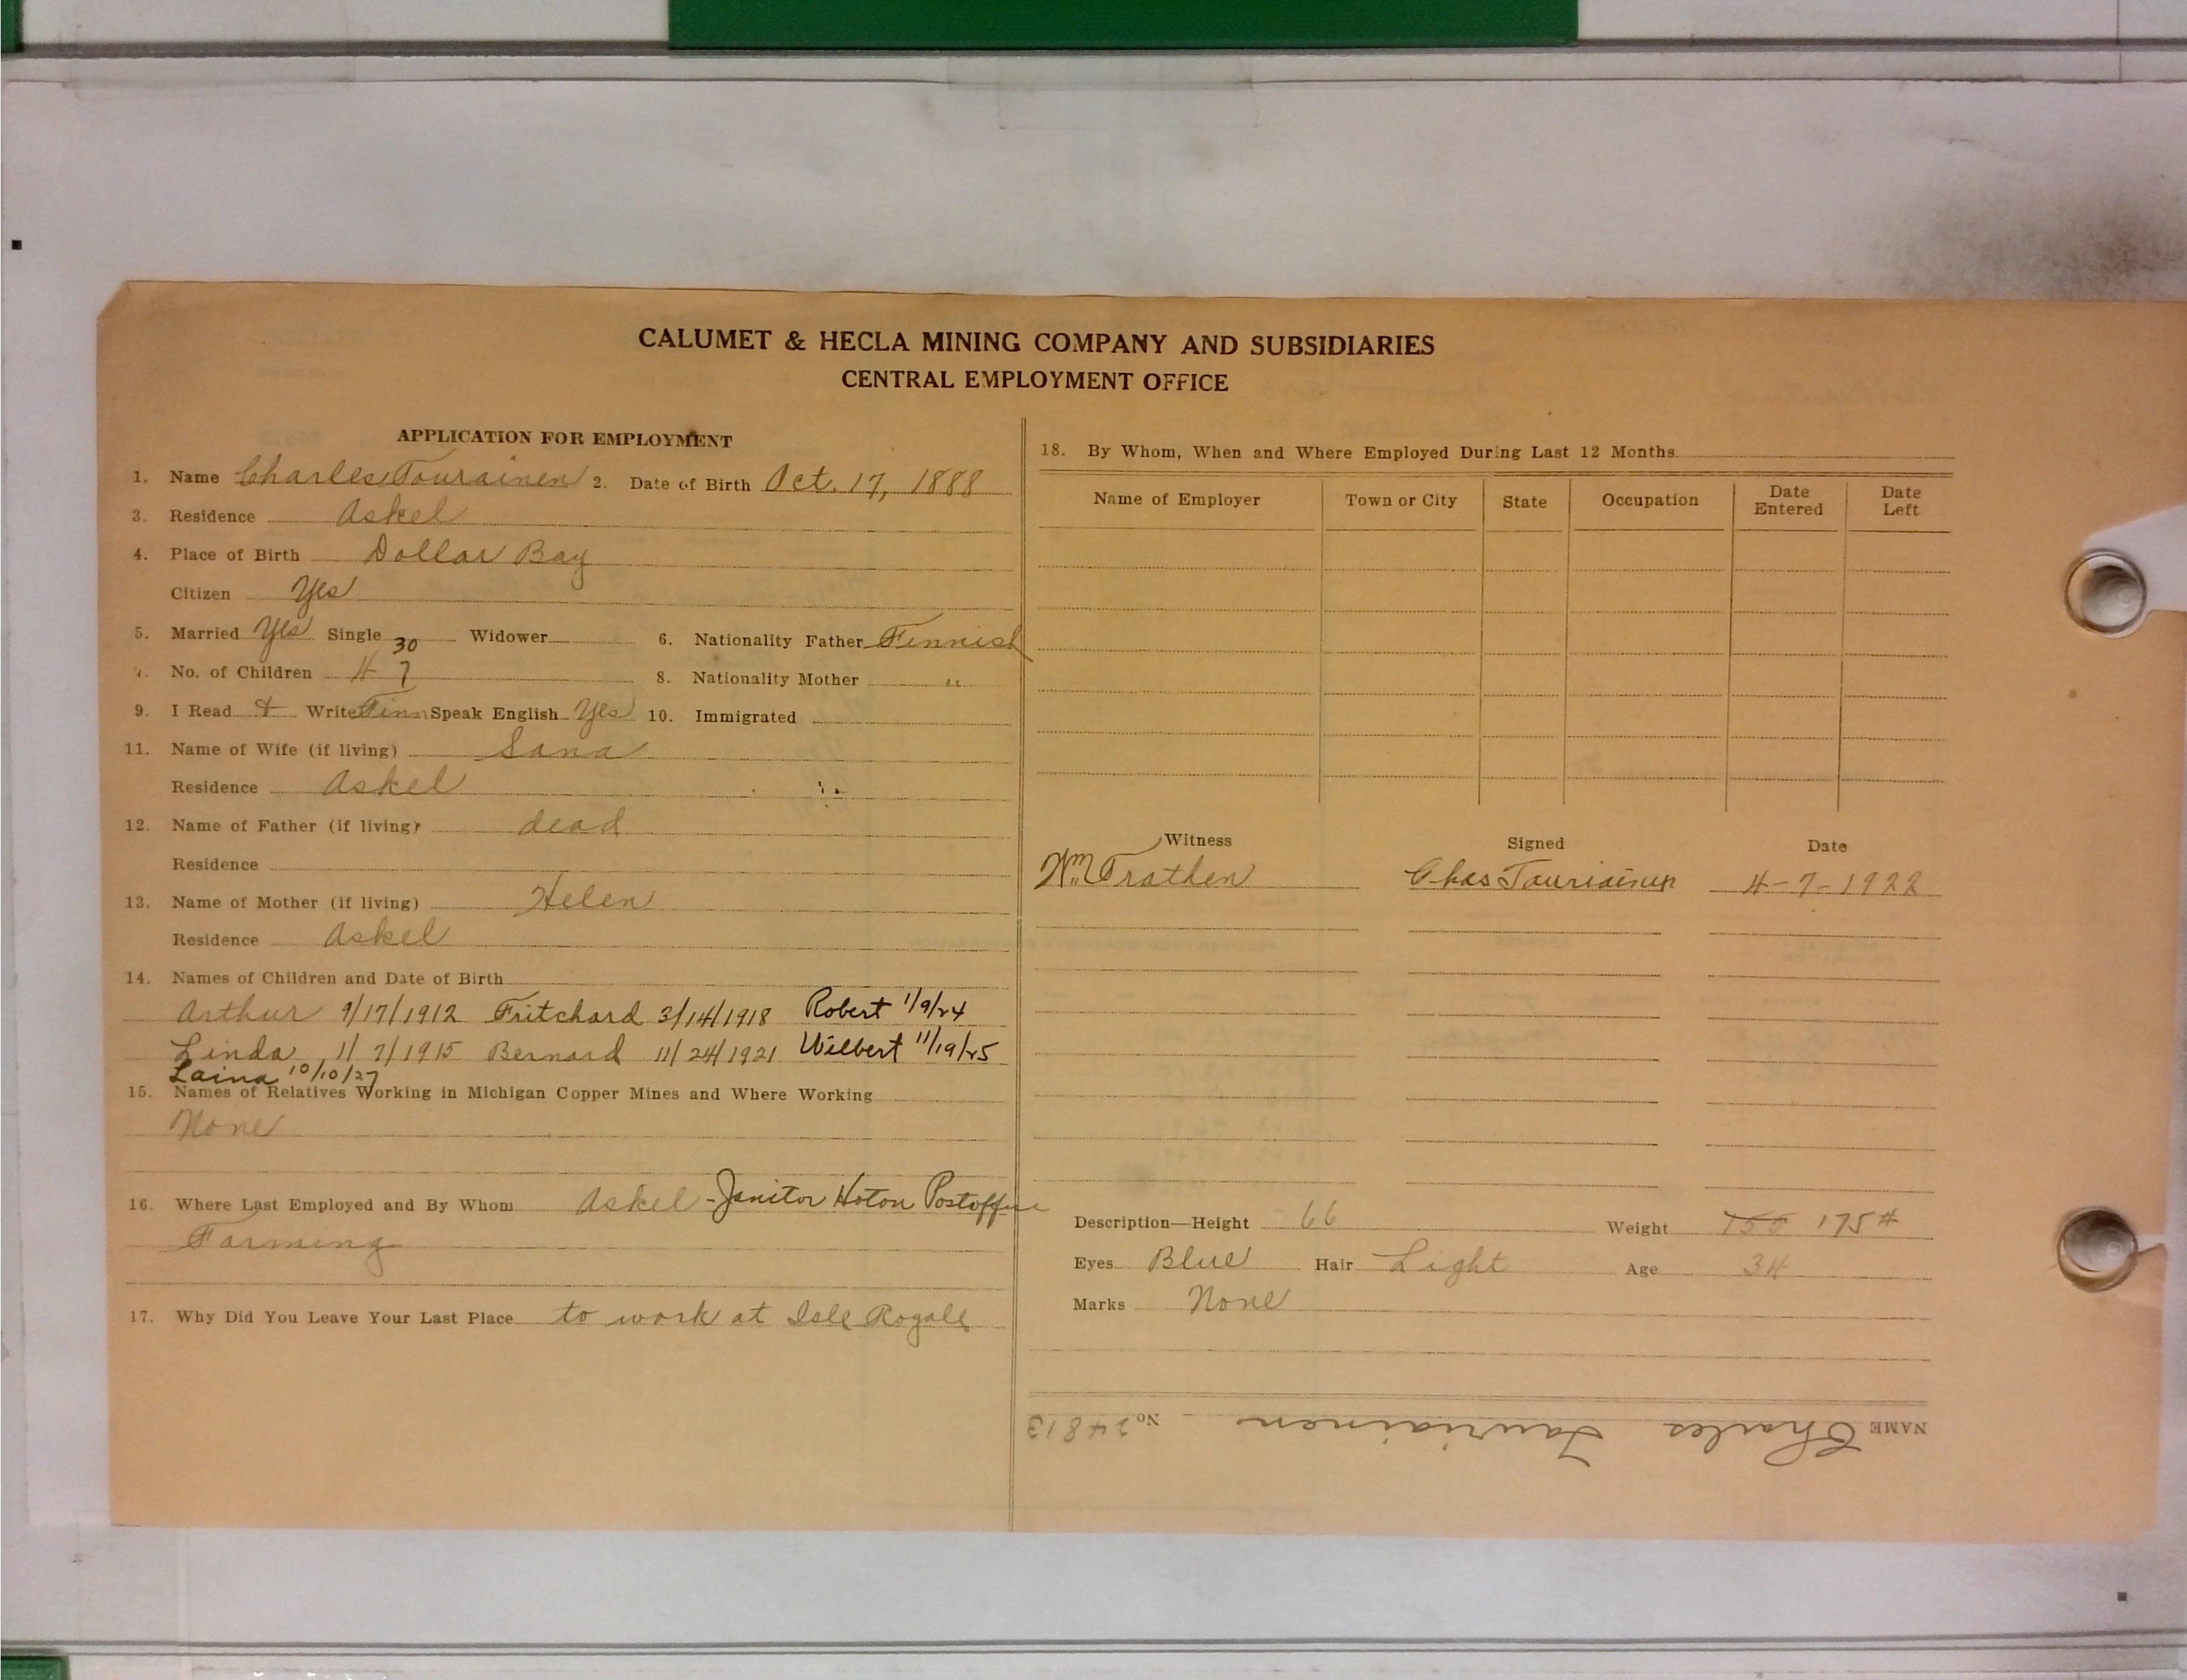 CALUMET & HECLA MINING COMPANY AND SUBSIDIARIES
CENTRAL EMPLOYMENT OFFICE
APPLICATION FOR EMPLOYMENT
1. Name Charles Tourainen 2. Date of Birth Oct. 17, 1888
3. Residence Askel
4. Place of Birth Dollar Bay
Citizen Yes
5. Married Yes Single Widower 6. Nationality Father Finnish
30
7. No. of Children 4 7 8. Nationality Mother "
9. I Read & Write Finn Speak English Yes 10. Immigrated
11. Name of Wife (if living) Sana
Residence Askel
12. Name of Father (if living) dead
Residence
13. Name of Mother (if living) Helen
Residence Askel
14. Names of Children and Date of Birth
Arthur 9/17/1912 Fritchard 3/14/1918 Robert 1/9/24
Linda 11/7/1915 Bernard 11/24/1921 Wilbert 11/19/25
Laina 10/10/27
15. Names of Relatives Working in Michigan Copper Mines and Where Working
None
16. Where Last Employed and By Whom Askel - Janitor Hoton Postoffice
Farming
17. Why Did You Leave Your Last Place to work at Isle Royale
18. By Whom, When and Where Employed During Last 12 Months
Name of Employer Town or City State Occupation Date Entered Date Left
Witness Signed Date
Wm Trathen Chas Tauriainen 4-7-1922
Description—Height 66 Weight 155 175#
Eyes Blue Hair Light Age 34
Marks None
NAME Charles Tauriainen No. 24813